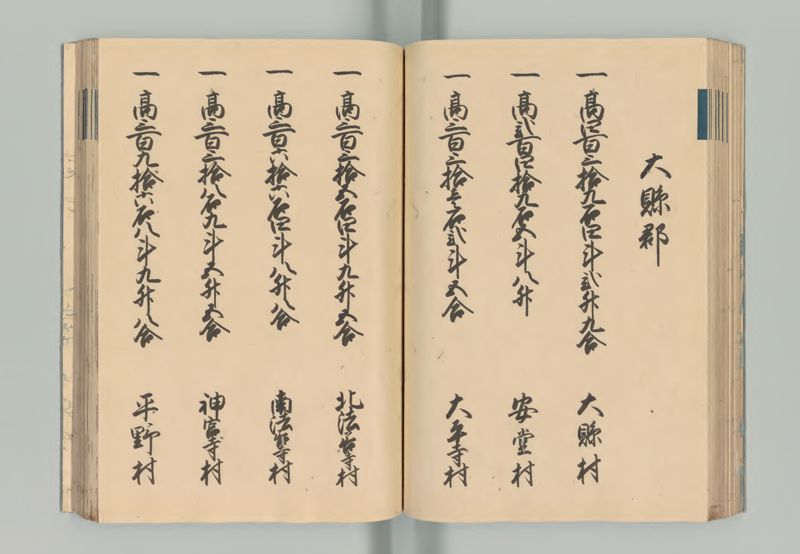 大縣郡
一 高四百三拾九石四斗弐升九合 大縣村
一 高弐百四拾九石五斗八升 安堂村
一 高三百三拾壱石弐斗五合 大平寺村
一 高三百三拾五石四斗九升五合 北法善寺村
一 高三百六拾六石四斗八升八合 南法善寺村
一 高三百三拾八石九斗五升五合 神宮寺村
一 高三百九拾六石八斗九升八合 平野村